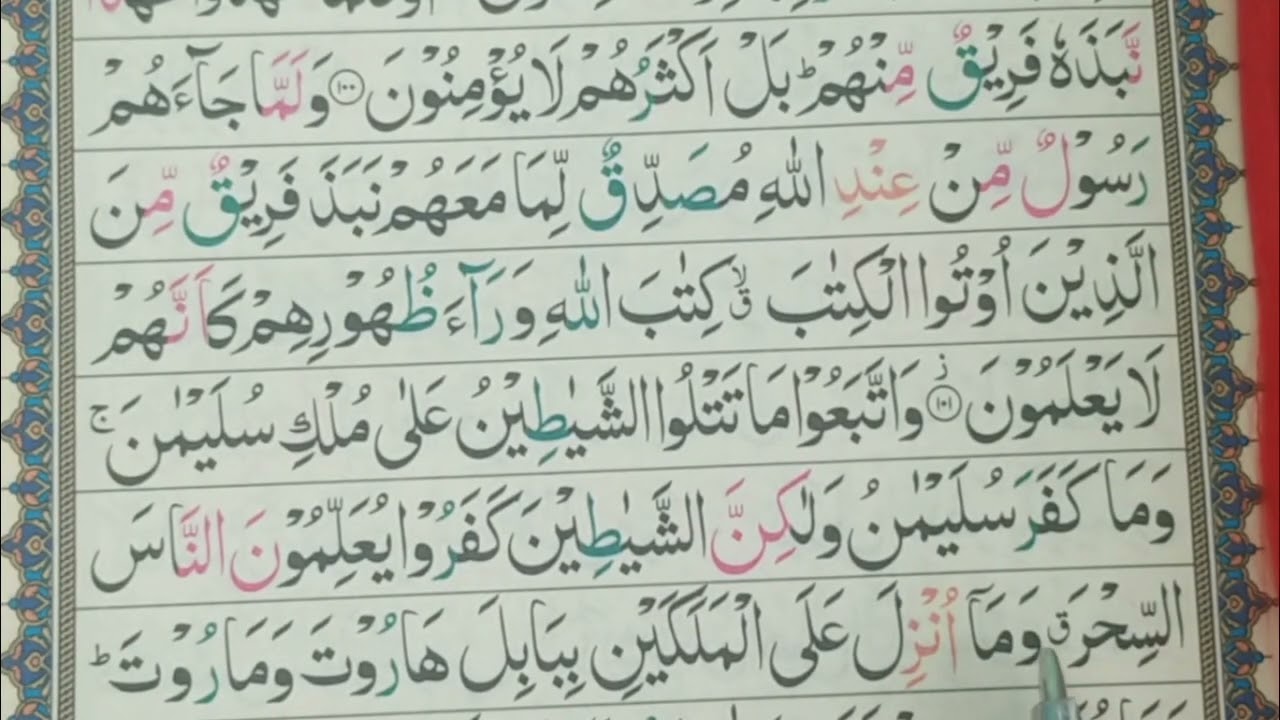 نَّبَذَهٗ فَرِيْقٌ مِّنْهُمْ ؕ بَلْ اَكْثَرُهُمْ لَا يُؤْمِنُوْنَ ﴿۱۰۰﴾ وَلَمَّا جَآءَهُمْ
رَسُوْلٌ مِّنْ عِنْدِ اللّٰهِ مُصَدِّقٌ لِّمَا مَعَهُمْ نَبَذَ فَرِيْقٌ مِّنَ
الَّذِيْنَ اُوْتُوا الْكِتٰبَ ۙۗ كِتٰبَ اللّٰهِ وَرَآءَ ظُهُوْرِهِمْ كَاَنَّهُمْ
لَا يَعْلَمُوْنَ ﴿۱۰۱﴾ ز وَاتَّبَعُوْا مَا تَتْلُوا الشَّيٰطِيْنُ عَلٰى مُلْكِ سُلَيْمٰنَ ۚ
وَمَا كَفَرَ سُلَيْمٰنُ وَلٰكِنَّ الشَّيٰطِيْنَ كَفَرُوْا يُعَلِّمُوْنَ النَّاسَ
السِّحْرَ ۗ وَمَآ اُنْزِلَ عَلَى الْمَلَكَيْنِ بِبَابِلَ هَارُوْتَ وَمَارُوْتَ ؕ